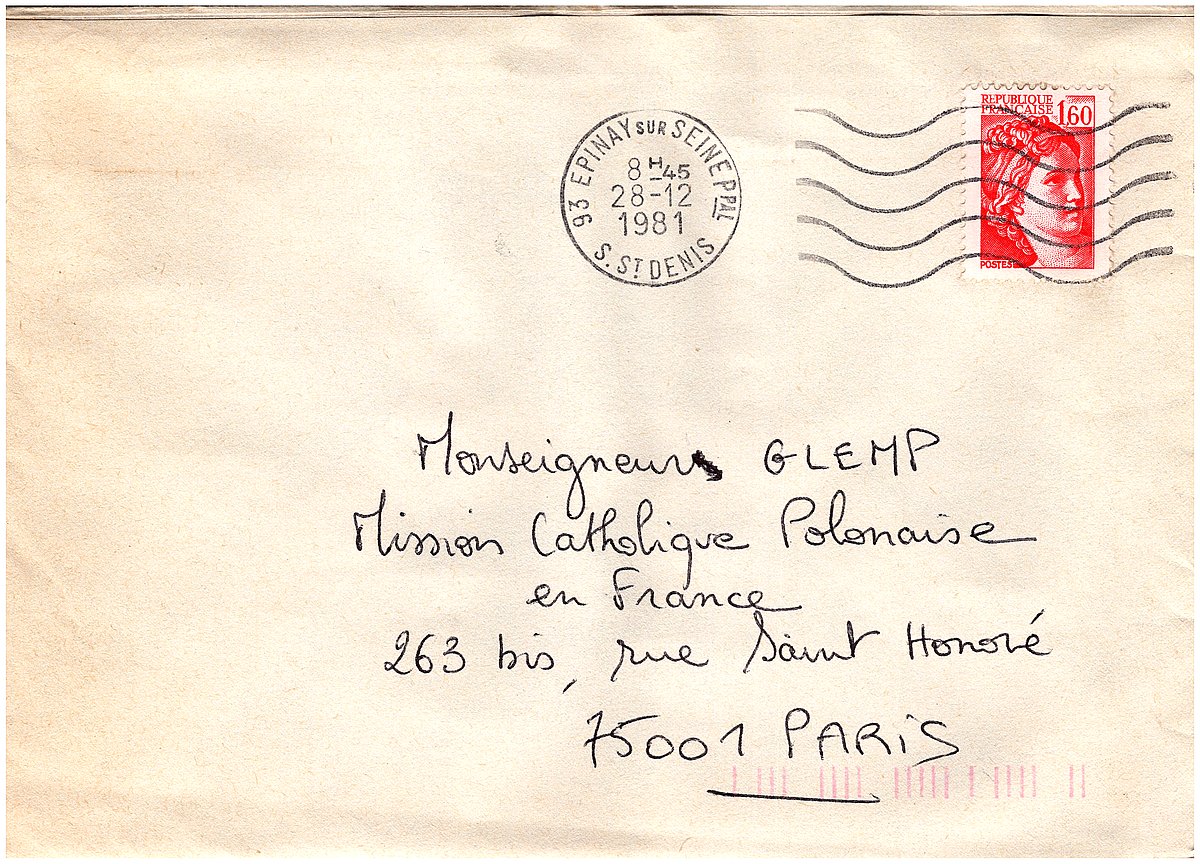 93 EPINAY SUR SEINE PPAL
8H45
28-12
1981
S. ST DENIS
REPUBLIQUE
FRANCAISE 1,60
POSTES
Monseigneur GLEMP
Mission Catholique Polonaise
en France
263 bis, rue Saint Honoré
75001 PARIS